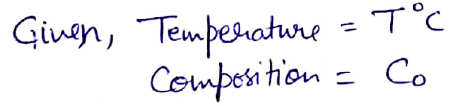 Given, Temperature = T°C
Composition = Co